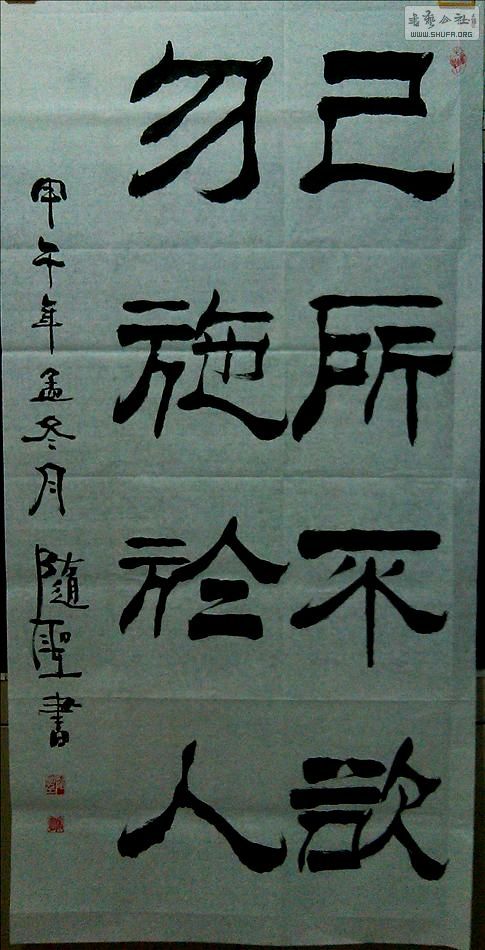 己所不欲
勿施於人
甲午年孟冬月 隨聖書
书艺公社
WWW.SHUFA.ORG